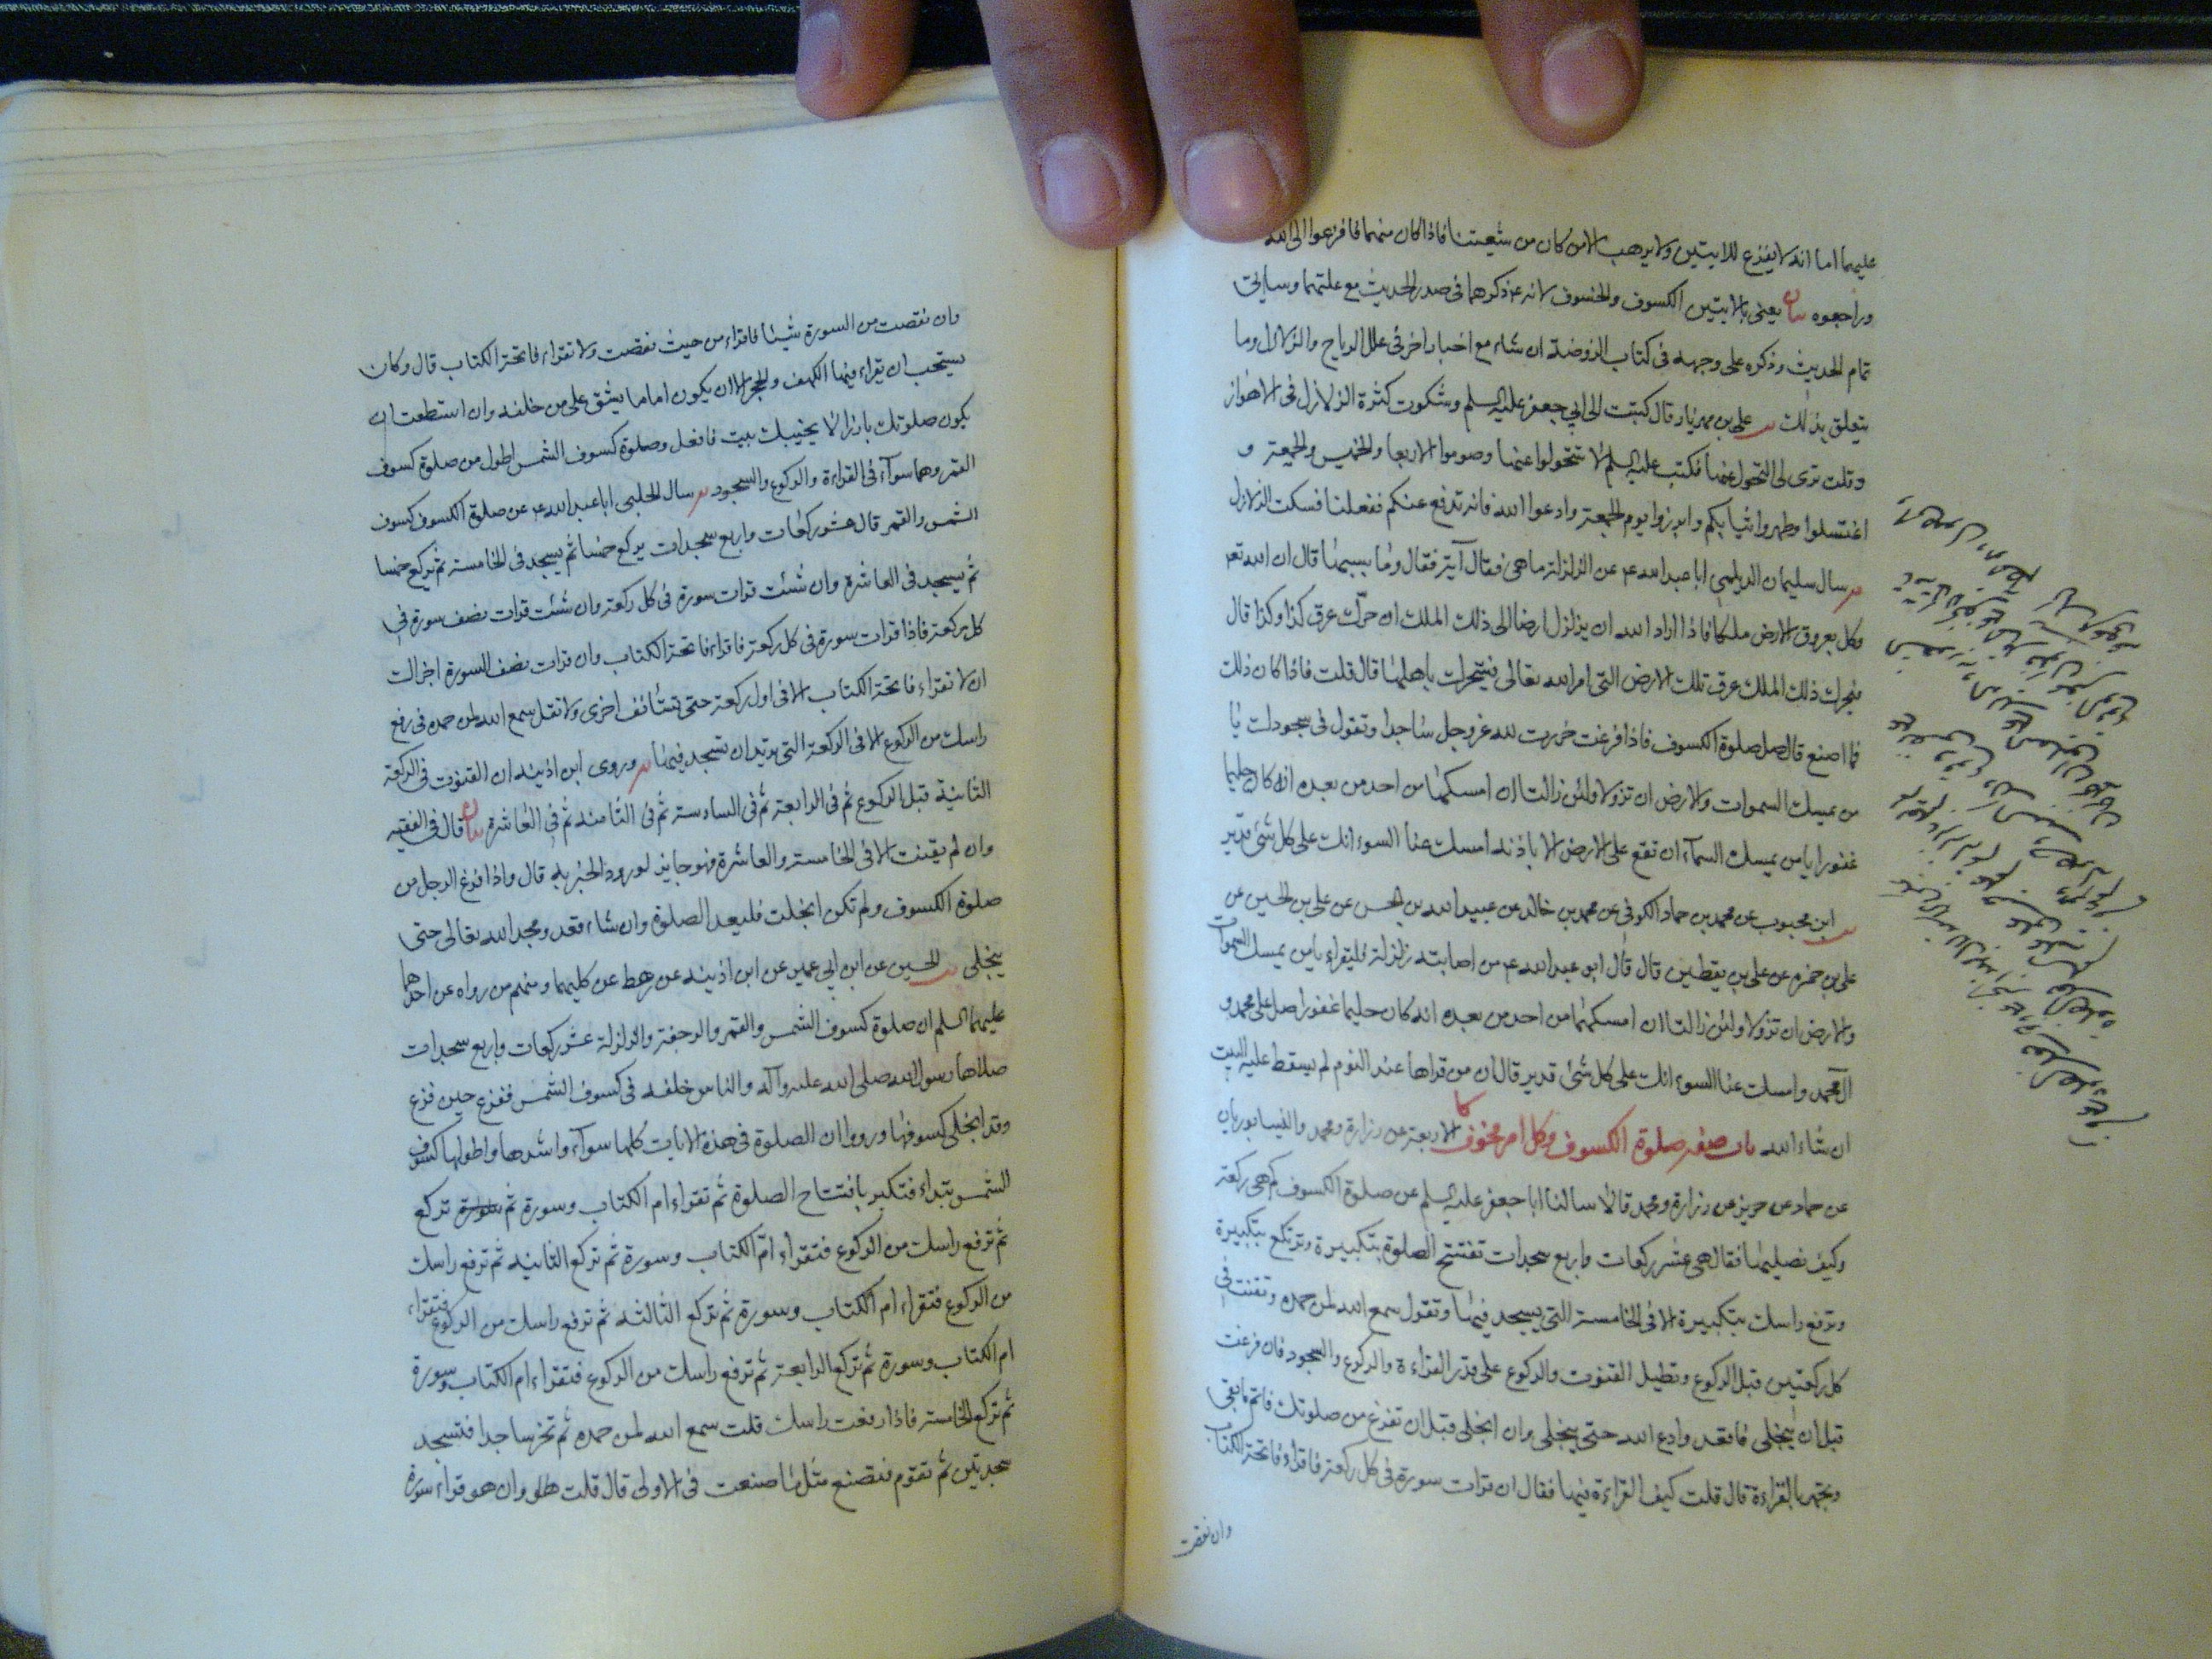 عليهما اما انه لا يفزع للايتين ولا يرهب الا من كان من شيعتنا فاذا كان منهما فافزعوا الى الله
وراجعوه بيان يعنى بالايتين الكسوف والخسوف لانه ع ذكرهما فى صدر الحديث مع علتهما وسياتى
تمام الحديث وذكره على وجهه فى كتاب الروضة ان شاء مع اخبار اخر فى علل الرياح والزلازل وما
يتعلق بذلك يه على بن مهزيار قال كتبت الى ابى جعفر عليه السلم وشكوت كثرة الزلازل فى الاهواز
وقلت ترى لى التحول عنها فكتب عليه السلم لا تتحولوا عنها وصوموا الاربعا والخميس والجمعة و
اغتسلوا وطهروا ثيابكم وابرزوا يوم الجمعة وادعوا الله فانه تدفع عنكم ففعلنا فسكت الزلازل
يه سال سليمان الديلمى ابا عبد الله ع عن الزلزلة ما هى فقال آية فقال وما سببها قال ان الله تع
وكل بعروق الارض ملكا فاذا اراد الله ان يزلزل ارضا الى ذلك الملك ان حرك عرق كذا وكذا قال
فيحرك ذلك الملك عرق تلك الارض التى امر الله تعالى فيتحرك باهلها قال قلت فاذا كان ذلك
فما اصنع قال صل صلوة الكسوف فاذا فرغت خررت لله عز وجل ساجدا وتقول فى سجودك يا
من يمسك السموات والارض ان تزولا ولئن زالتا ان امسكهما من احد من بعده انه كان حليما
غفورا يا من يمسك السمآء ان تقع على الارض الا باذنه امسك عنا السوء انك على كل شئ قدير
يب ابن محبوب عن محمد بن حماد الكوفى عن محمد بن خالد عن عبيد الله بن الحسن عن على بن الحسين عن
على بن حمزه عن على بن يقطين قال قال ابو عبد الله ع من اصابته زلزلة فليقراء يا من يمسك السموات
والارض ان تزولا ولئن زالتا ان امسكهما من احد من بعده انه كان حليما غفورا صل على محمد و
آل محمد وامسك عنا السوء انك على كل شئ قدير قال ان من قراها عند النوم لم يسقط عليه البيت
ان شاء الله باب صفة صلوة الكسوف وكل امر مخوف كا الاربعة عن زرارة ومحمد والنيسابوريان
عن حماد عن حريز عن زرارة ومحمد قالا سالنا ابا جعفر عليه السلم عن صلوة الكسوف كم هى ركعة
وكيف نصليها فقال هى عشر ركعات واربع سجدات تفتتح الصلوة بتكبيرة وتركع بتكبيرة
وترفع راسك بتكبيرة الا فى الخامسة التى يسجد فيها وتقول سمع الله لمن حمده وتقنت فى
كل ركعتين قبل الركوع وتطيل القنوت والركوع على قدر القراءة والركوع والسجود فان فرغت
قبل ان ينجلى فاقعد وادع الله حتى ينجلى وان انجلى قبل ان تفرغ من صلوتك فاتم ما بقى
وتجهر بالقراءة قال قلت كيف القراءة فيها فقال ان قرات سورة فى كل ركعة فاقراء فاتحة الكتاب
وان نقصت
وان نقصت من السورة شيئا فاقراء من حيث نقصت ولا تقراء فاتحة الكتاب قال وكان
يستحب ان يقراء فيها الكهف والحجر الا ان يكون اماما يشق على من خلفه وان استطعت ان
يكون صلوتك بارزا لا يجنيك بيت فافعل وصلوة كسوف الشمس اطول من صلوة كسوف
القمر وهما سوآء فى القراءة والركوع والسجود يه سال الحلبى ابا عبد الله ع عن صلوة الكسوف كسوف
الشمس والقمر قال عشر ركعات واربع سجدات يركع خمسا ثم يسجد فى الخامسة ثم يركع خمسا
ثم يسجد فى العاشرة وان شئت قرات سورة فى كل ركعة وان شئت قرات نصف سورة فى
كل ركعة فاذا قرات سورة فى كل ركعة فاقراء فاتحة الكتاب وان قرات نصف السورة اجزاك
ان لا تقراء فاتحة الكتاب الا فى اول ركعة حتى تستأنف اخرى ولا تقل سمع الله لمن حمده فى رفع
راسك من الركوع الا فى الركعة التى يريد ان تسجد فيها يه وروى ابن اذينه ان القنوت فى الركعة
الثانية قبل الركوع ثم فى الرابعة ثم فى السادسة ثم فى الثامنة ثم فى العاشرة بيان قال فى الفقيه
وان لم يقنت الا فى الخامسة والعاشرة فهو جايز لورود الخبر به قال واذا فرغ الرجل من
صلوة الكسوف ولم تكن انجلت فليعد الصلوة وان شاء قعد ومجد الله تعالى حتى
ينجلى يب الحسين عن ابن ابى عمير عن ابن اذينه عن رهط عن كليهما ومنهم من رواه عن احدهما
عليهما السلم ان صلوة كسوف الشمس والقمر والرجفة والزلزلة عشر ركعات واربع سجدات
صلاها رسول الله صلى الله عليه وآله والناس خلفه فى كسوف الشمس ففزع حين فزع
وقد انجلى كسوفها ورووا ان الصلوة فى هذه الايات كلها سوآء واشدها واطولها كسوف
الشمس يبتداء فتكبر بافتتاح الصلوة ثم تقراء ام الكتاب وسورة ثم تركع
ثم ترفع راسك من الركوع فتقراء ام الكتاب وسورة ثم تركع الثانيه ثم ترفع راسك
من الركوع فتقراء ام الكتاب وسورة ثم تركع الثالثه ثم ترفع راسك من الركوع فتقراء
ام الكتاب وسورة ثم تركع الرابعة ثم ترفع راسك من الركوع فتقراء ام الكتاب وسورة
ثم تركع الخامسة فاذا رفعت راسك قلت سمع الله لمن حمده ثم تخر ساجدا فتسجد
سجدتين ثم تقوم فتصنع مثل ما صنعت فى الاولى قال قلت وان هو قراء سورة